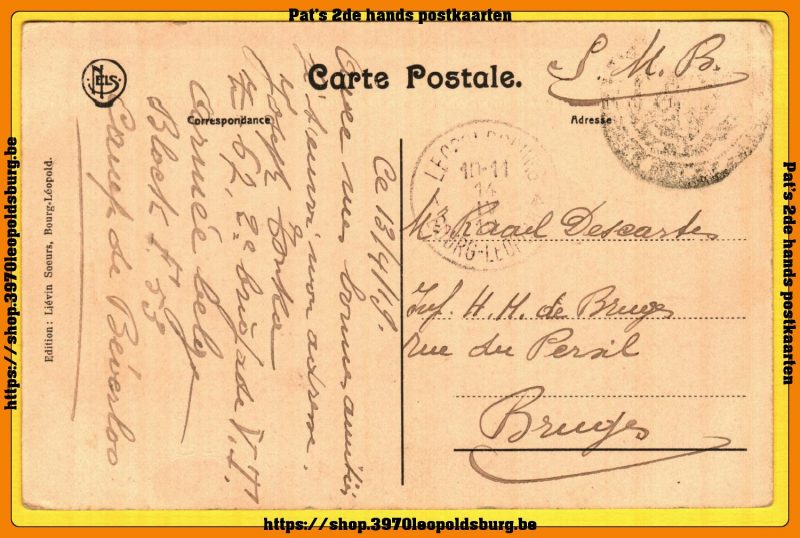 Pat's 2de hands postkaarten
NELS
Carte Postale.
S. M. B.
Correspondance
Adresse
Ce 13/4/19.
Avec mes bonnes amitiés
ci-dessous mon adresse.
Joseph
Z 62, 2e brigade
Armée belge
Block
Camp de Béverloo
10-11
14
BOURG-LEOPOLD
Mr Raoul Descartes
Inf. H. M. de Bruges
rue du Persil
Bruges
Edition: Liévin Soeurs, Bourg-Léopold.
https://shop.3970leopoldsburg.be
Pat's 2de hands postkaarten
https://shop.3970leopoldsburg.be